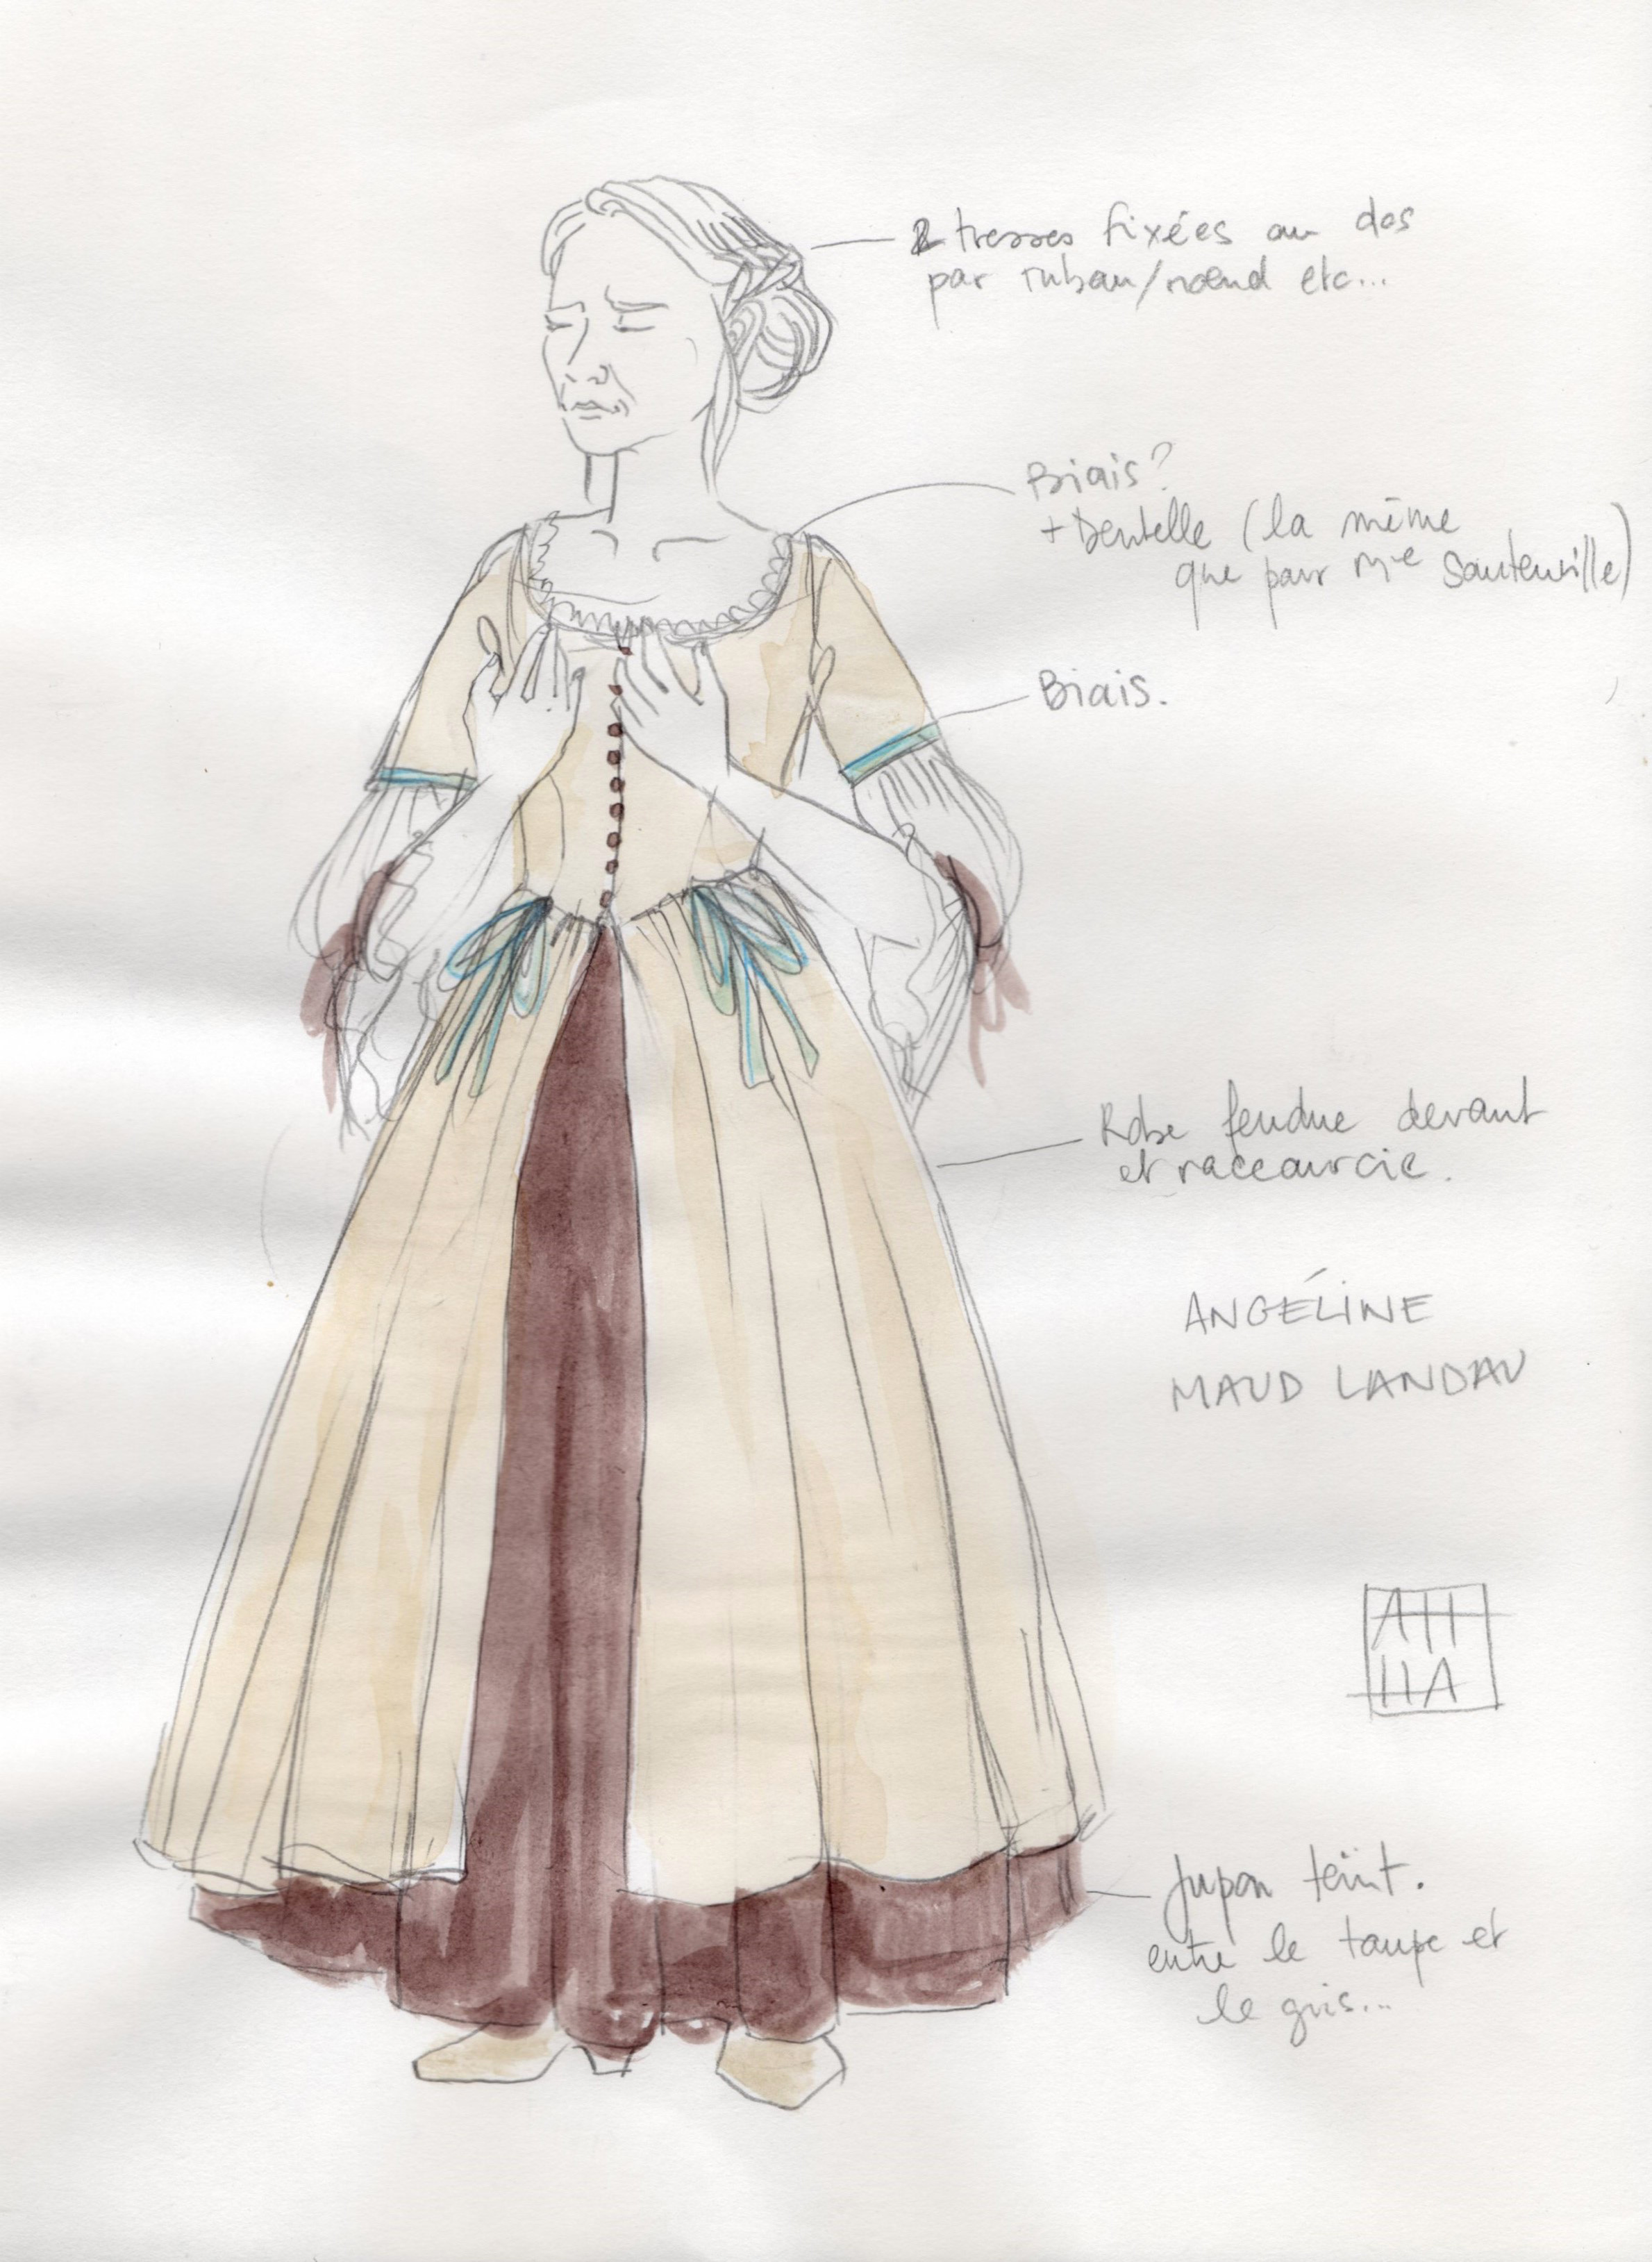 2 tresses fixées au dos
par ruban/nœud etc...
Biais?
+ Dentelle (la même
que pour Mme Sauteuville)
Biais.
Robe fendue devant
et raccourcie.
ANGÉLINE
MAUD LANDAU
ATTI
LLA
Jupon teint.
entre le taupe et
le gris...